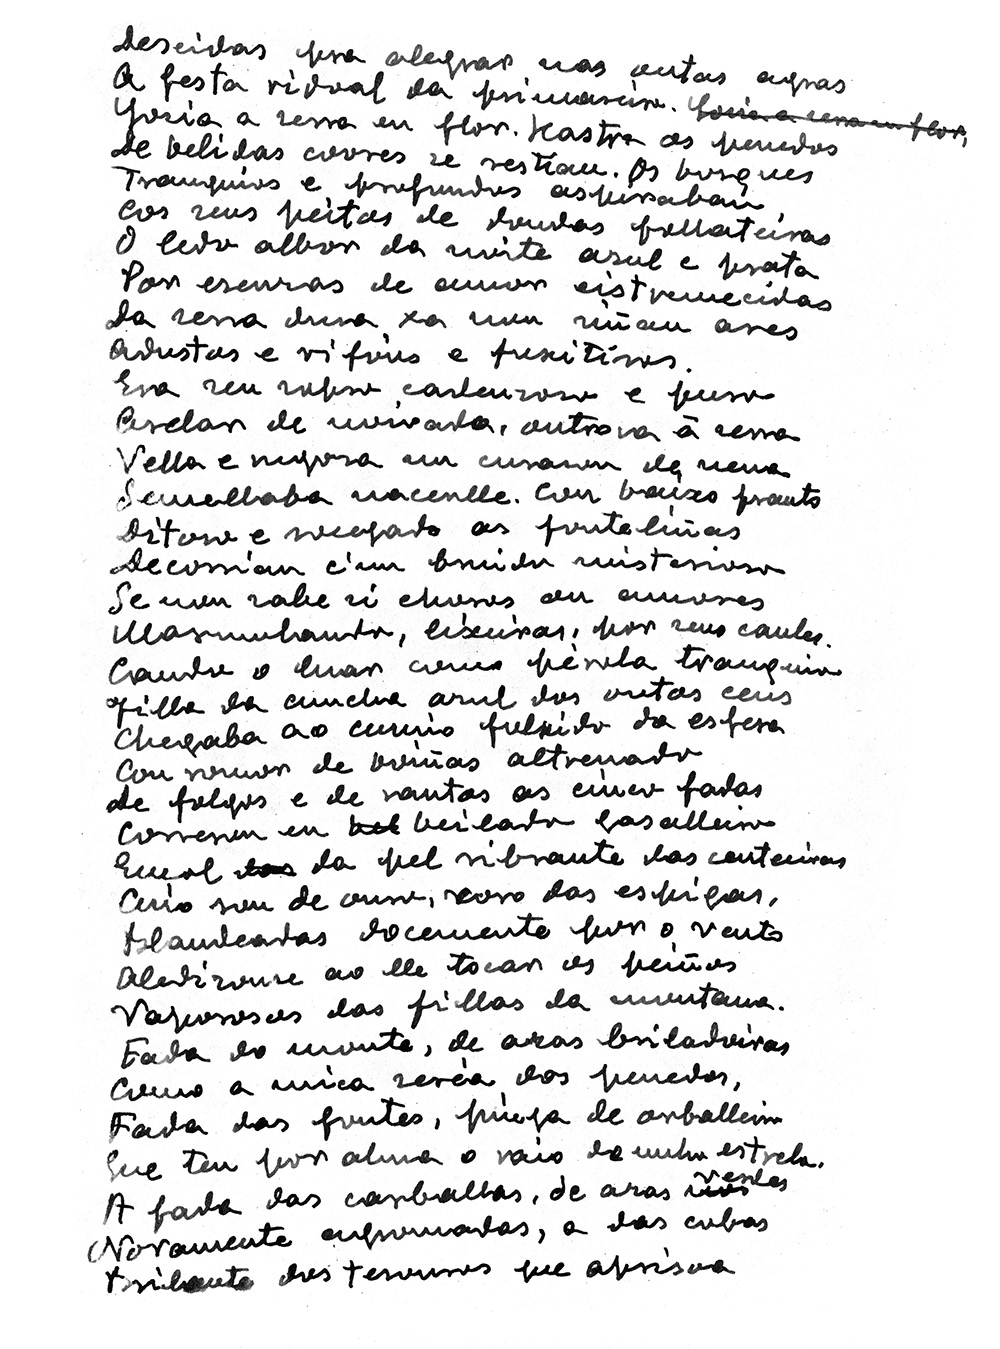 Descidas pra alegrar nas outas agras
A festa ridoal da primaveira. Yocia a serra en flor,
Yocia a serra en flor. Hastra os penedos
De belidas coores se vestían. Os bosques
Tranquios e profundos aspiraban
Cos seus peitos de doudas follateiras
O ledo albor da noite azul e prata
Por escuras de amor eistremecidas
Da serra dura xa non viñan aves
Adustos e vifóns e fuxitivos.
Era seu sopro cadenzoso e puro
Arelar de noivada, outrova á serra
Vella e nugosa un curazon de nena
Semellaba nacerlle. Con baixo pranto
Ditoso e socegado as fonteliñas
Decorrian c'un bruido misterioso
Se non sabe si choros ou amores
Marmulando, lixeiras, por seus canles.
Cando o luar como pérola tranquia
Filla da cuncha azul dos outos ceus
Chegaba ao cumio fulxido da esfera
Con rumor de boiñas altrenado
De folgos e de santos as cinco fadas
Correron en beilado gasalleiro
Enrol da pel vibrante das centeeiras
Cuio son de ouro, xoro das espigas,
Abandeadas docemente por o vento
Aledizouse ao lle tocar os peiños
Vaporosos das fillas da montana.
Fada do monte, de azas briladoiras
Como a mica sereia dos penedos,
Fada das fontes, pinga de orballeira
Que ten por alma o raio da unha estrela.
A fada das carballas, de azas verdes
Novamente agromadas, a das cobas
Brilante dos tesouros que aprisoa